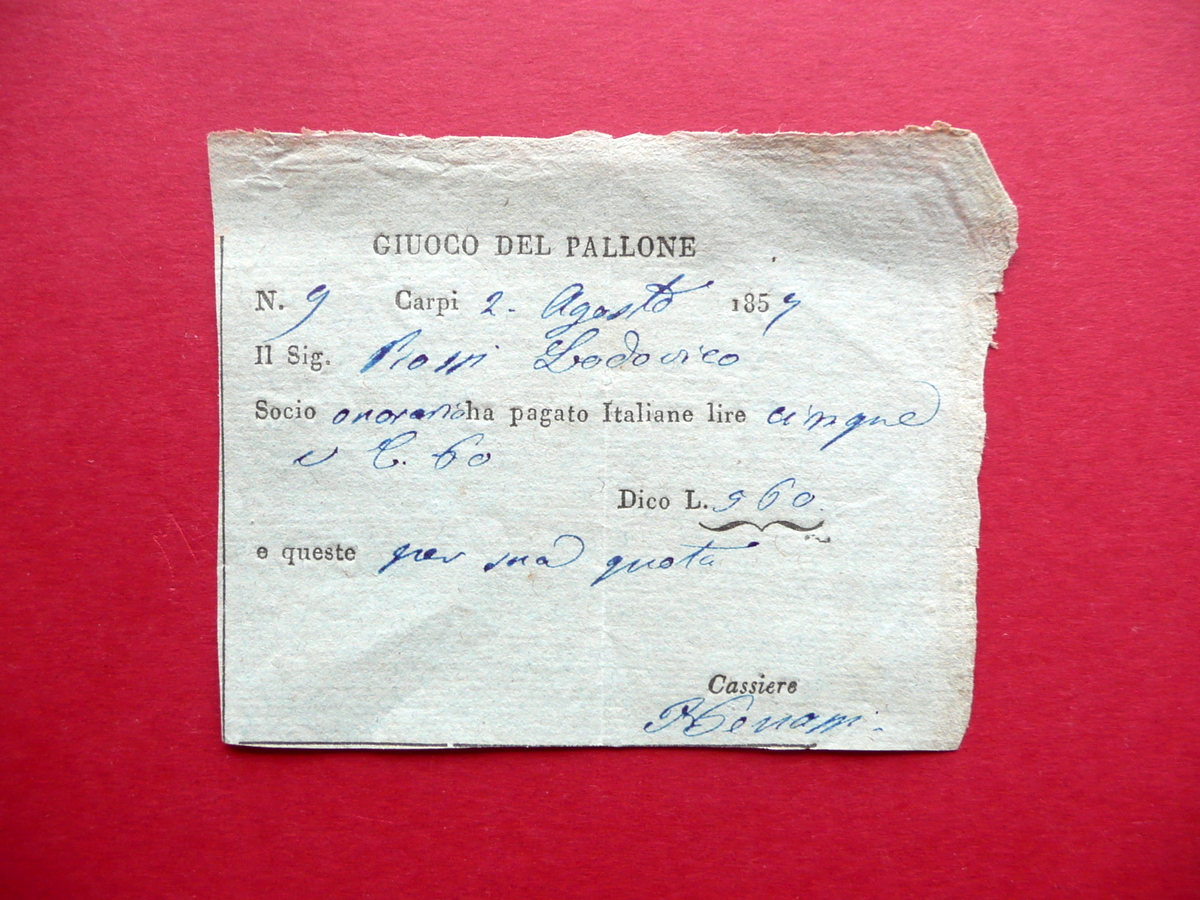 GIUOCO DEL PALLONE
N. 9 Carpi 2. Agosto 1857
Il Sig. Rossi Lodovico
Socio onorario ha pagato Italiane lire cinque
e C. 60
Dico L. 5 60.
e queste per sua quota
Cassiere